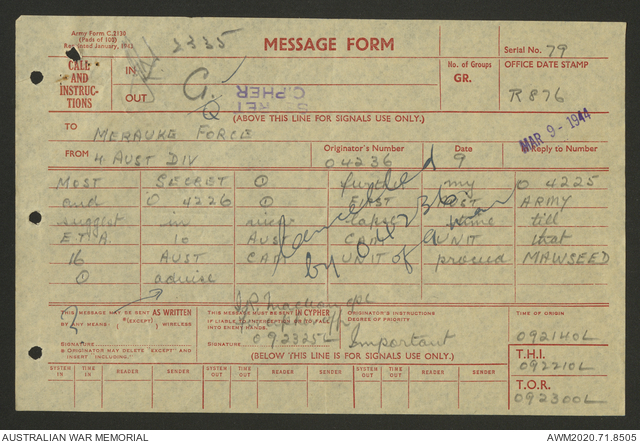 Army Form C.2130
(Pads of 100)
Reprinted January, 1943
2335
MESSAGE FORM
Serial No. 79
CALL
AND
INSTRUC-
TIONS
IN
OUT
G.
Q
CIPHER
No. of Groups
GR.
OFFICE DATE STAMP
R 876
MAR 9 - 1944
(ABOVE THIS LINE FOR SIGNALS USE ONLY.)
TO MERAUKE FORCE
FROM 4 AUST DIV
Originator's Number
04236
Date
9
In Reply to Number
MOST SECRET ① further my O 4225
and O 4226 ① FIRST AUST ARMY
suggest in lapse time till
E.T.A. 10 AUST CAM UNIT that
16 AUST CAM UNIT proceed MAWSEED
① advise
Cancelled
by
THIS MESSAGE MAY BE SENT AS WRITTEN
BY ANY MEANS (EXCEPT) WIRELESS
SIGNATURE
ORIGINATOR MAY DELETE "EXCEPT" AND
INSERT "INCLUDING."
THIS MESSAGE MUST BE SENT IN CYPHER
IF LIABLE TO INTERCEPTION OR TO FALL
INTO ENEMY HANDS.
092325L
SIGNATURE
ORIGINATOR'S INSTRUCTIONS
DEGREE OF PRIORITY
Important
TIME OF ORIGIN
092140L
T.H.I.
092210L
T.O.R.
092300L
(BELOW THIS LINE IS FOR SIGNALS USE ONLY.)
SYSTEM IN TIME IN READER SENDER SYSTEM OUT TIME OUT READER SENDER SYSTEM OUT TIME OUT READER SENDER
AUSTRALIAN WAR MEMORIAL
AWM2020.71.8505